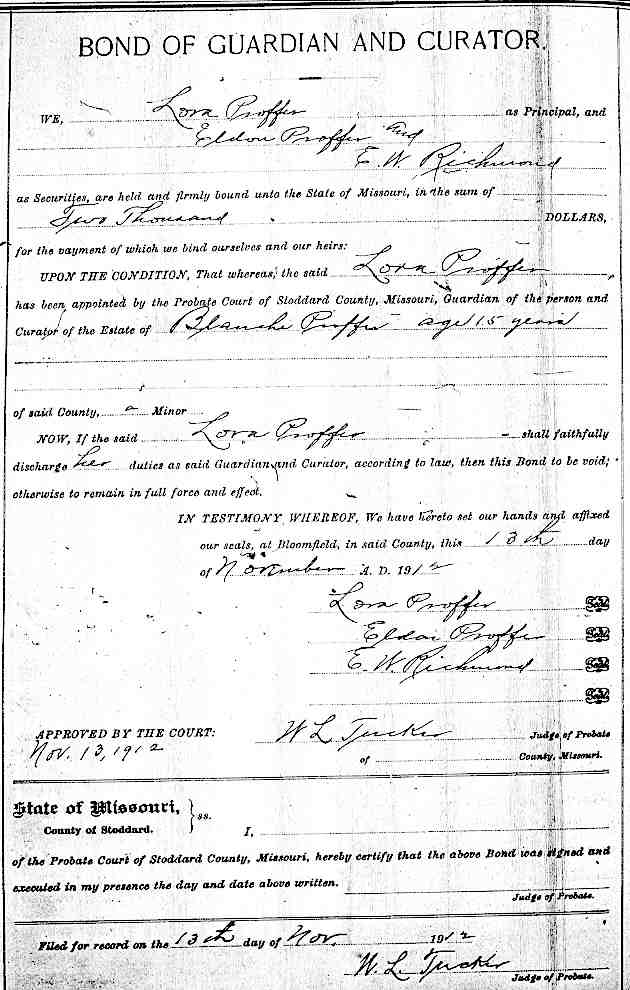 BOND OF GUARDIAN AND CURATOR.
WE, Lora Proffer as Principal, and
Eldon Proffer and
E. W. Richmond
as Securities, are held and firmly bound unto the State of Missouri, in the sum of
Two Thousand DOLLARS,
for the payment of which we bind ourselves and our heirs:
UPON THE CONDITION, That whereas, the said Lora Proffer
has been appointed by the Probate Court of Stoddard County, Missouri, Guardian of the person and
Curator of the Estate of Blanche Proffer age 15 years
of said County, a Minor
NOW, If the said Lora Proffer shall faithfully
discharge her duties as said Guardian and Curator, according to law, then this Bond to be void;
otherwise to remain in full force and effect.
IN TESTIMONY WHEREOF, We have hereto set our hands and affixed
our seals, at Bloomfield, in said County, this 13th day
of November A. D. 1912
Lora Proffer Seal
Eldon Proffer Seal
E. W. Richmond Seal
Seal
APPROVED BY THE COURT: W L Tucker Judge of Probate
Nov. 13, 1912 of County, Missouri.
State of Missouri, } ss.
County of Stoddard. I,
of the Probate Court of Stoddard County, Missouri, hereby certify that the above Bond was signed and
executed in my presence the day and date above written.
Judge of Probate.
Filed for record on the 13th day of Nov. 1912
W. L. Tucker Judge of Probate.